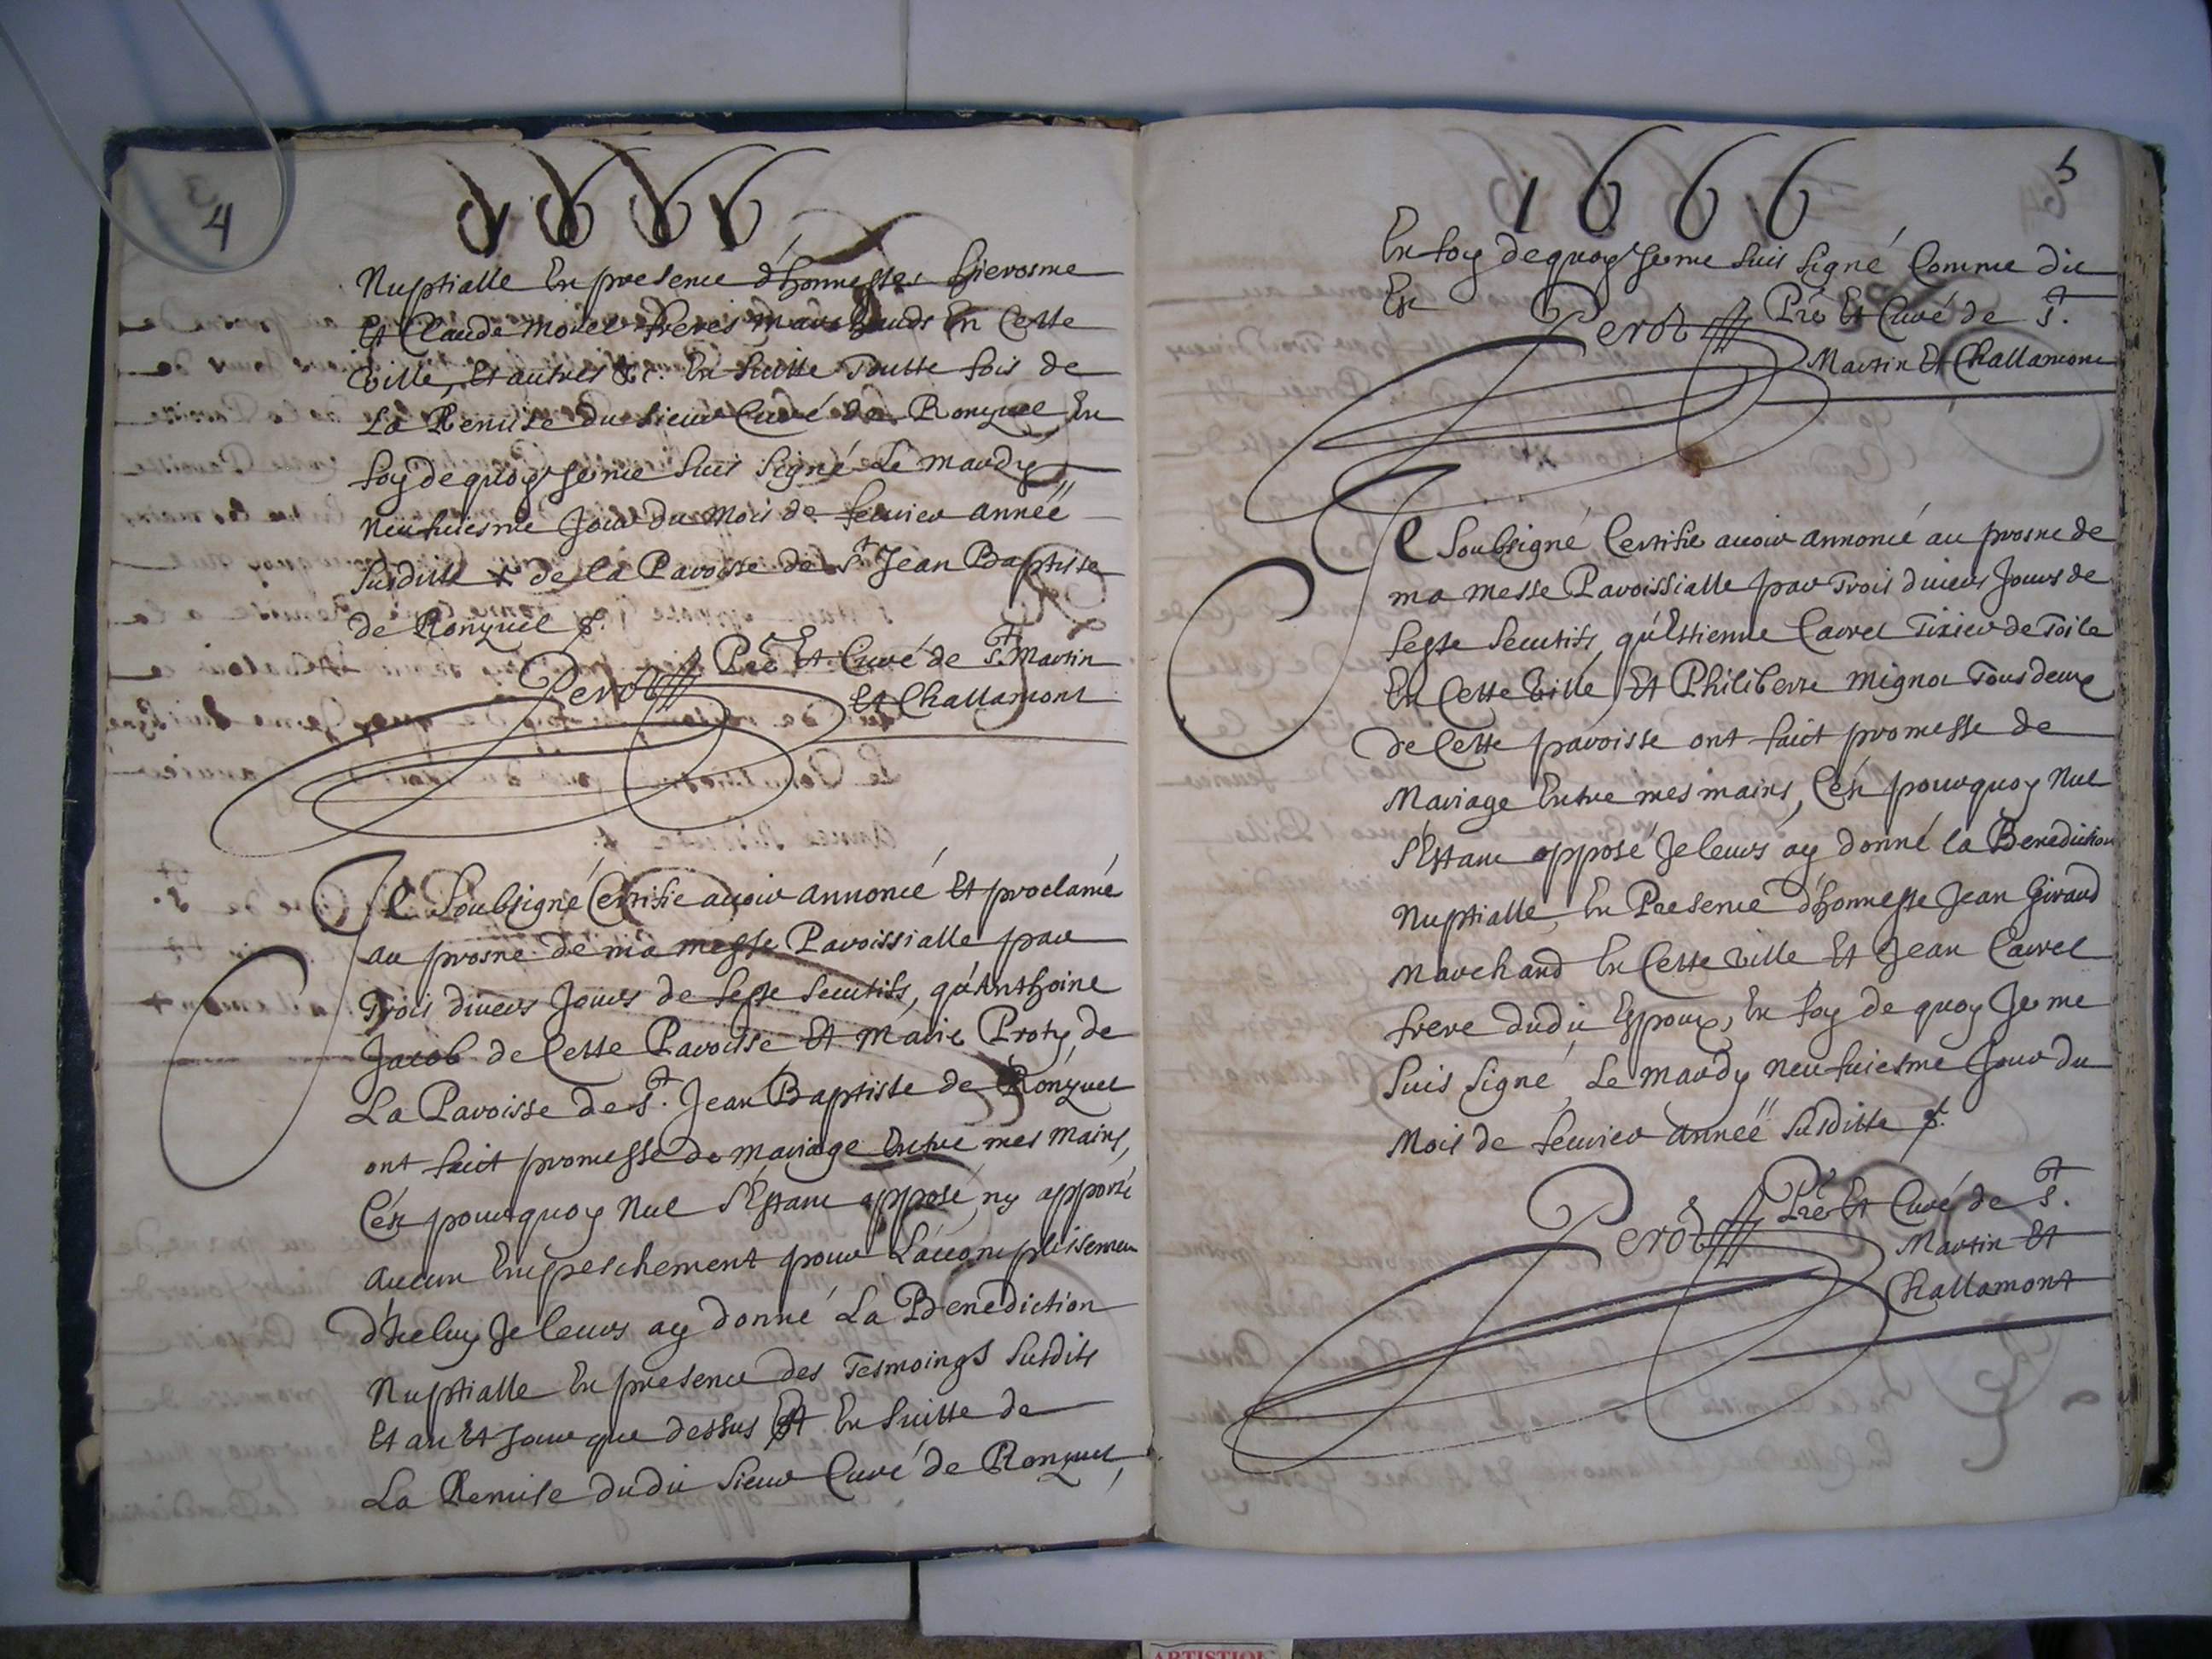 4
1666
Nuptialle En presence d'honnestes hierosme
Et Claude Morel freres marchands En Cette
Ville, Et autres &c. En suitte Toutte fois de
La Remise du sieur Curé de Ronzuel En
foy de quoy Je me suis signé Le mardy
neufuiesme Jour du Mois de feurier année
susditte + de la Paroisse de St Jean Baptiste
de Ronzuel
Perot Pre Et Curé de St. Martin
Et Challamont
Je Soubsigné Certifie auoir annoncé Et proclamé
au prosne de ma messe Paroissialle par
Trois diuers Jours de feste secutifs, qu'Anthoine
Jacob de Cette Paroisse Et Marie Proty de
La Paroisse de St. Jean Baptiste de Ronzuel
ont faict promesse de mariage Entre mes mains,
C'est pourquoy Nul s'Estant opposé ny apporté
aucun Empeschement pour L'accomplissement
d'Iceluy Je leurs ay donné La Benediction
Nuptialle En presence des Tesmoings susdits
Et an Et Jour que dessus Et En suitte de
La Remise dudit sieur Curé de Ronzuel,
5
1666
En foy de quoy Je me suis signé Comme dit
Est Perot Pre Et Curé de St.
Martin Et Challamont
Je Soubsigné Certifie auoir annoncé au prosne de
ma messe Paroissialle par Trois diuers Jours de
feste secutifs, qu'Estienne Carrel Tixier de Toile
En Cette Ville, Et Philiberte Mignot Tous deux
de Cette paroisse ont faict promesse de
Mariage Entre mes mains, C'est pourquoy Nul
s'Estant opposé Je leurs ay donné la Benediction
Nuptialle, En Presence d'honneste Jean Giraud
Marchand En Cette Ville Et Jean Carrel
frere dudit Espoux, En foy de quoy Je me
suis signé, Le mardy neufuiesme Jour du
Mois de feurier année susditte
Perot Pre Et Curé de St.
Martin Et
Challamont